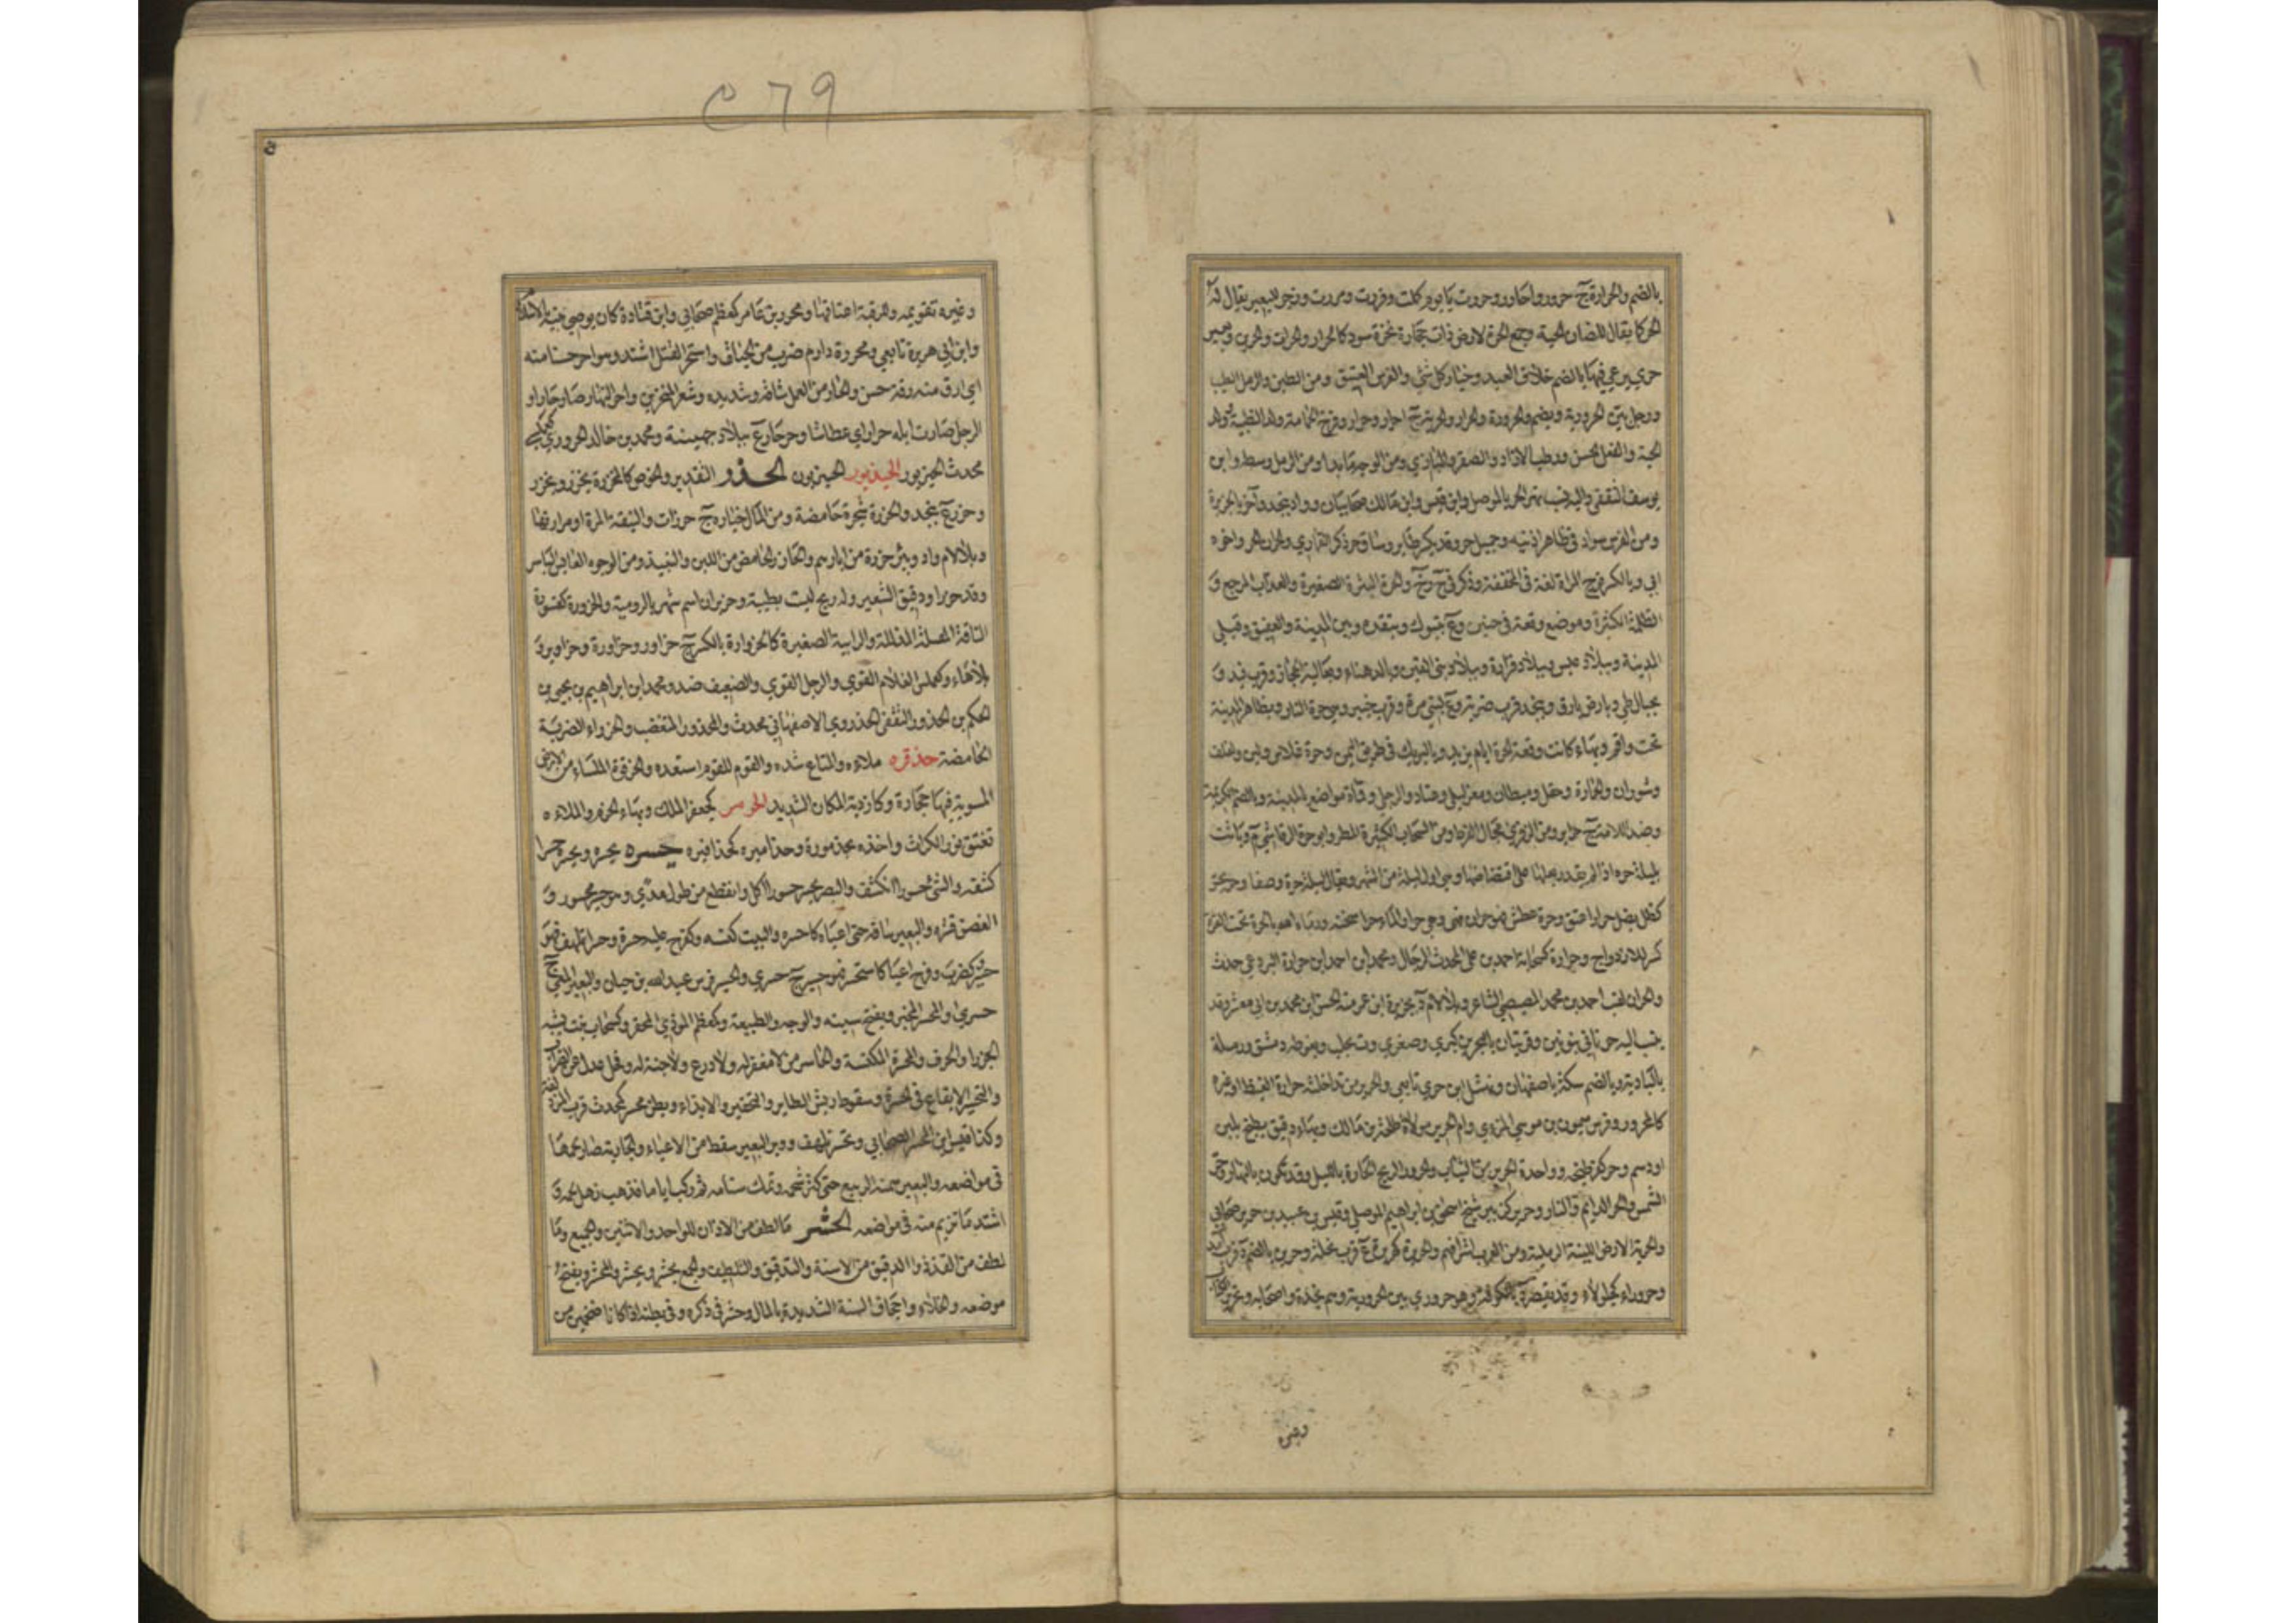 بالضم والحرارة ج حرور واحارر وحررت يا يوم كمللت وفررت ومررت وزجر للبعير يقال له
الحر كما يقال للضان الحيه وجمع الحرة لارض ذات حجارة نخرة سود كالحرار والحرات والحرين وبعير
حري يرعى فيها وبالضم خلاف العبد وخيار كل شي والفرس العتيق ومن الطين والرمل الطيب
ورجل بين الحرورية ويضم والحرورة والحرار والحرية ج احرار وحرار وفرخ الحمامة وولد الظبية وولد
الحية والفعل الحسن ورطب الازاد والصقر والبازي ومن الوجه ما بدا ومن الرمل وسطه وابن
يوسف الثقفي واليه نسب نهر الحر بالموصل وابن قيس وابن مالك صحابيان وواد بنجد وآخر بالجزيرة
ومن الفرس سواد في ظاهر اذنيه وجميل حر وقد يكسر طاير وساق حر ذكر القماري
وبالكسر فرج المراة لغة في المخففة وذكر في ح ر ح والحرة البثرة الصغيرة والعذاب الموجع و
الظلمة الكثيرة وموضع وقعة في حنين وع بتبوك وبنقدة وبين المدينة والعقيق وقبلي
المدينة وببلاد عبس وببلاد فزارة وببلاد بني القين وبالدهناء وبعالية الحجاز وقرب فيد و
بجبال طي وبارض بارق وبنجد قرب ضرية وع لبني مرة وقرب خيبر وهي حرة النار وبظاهر المدينة
تحت واقم وبها كانت وقعة الحرة ايام يزيد وبالبريك في طريق اليمن وحرة غلاس ولبن ولفلف
وشوران والحمارة وحقل وميطان ومعشر وليلى وعباد والرجلى وقماة مواضع بالمدينة وبالضم الكريمة
وضد الامة ج حراير ومن الذفرى مجال القرط ومن السحاب الكثيرة المطر وابو حرة الرقاشي م وباتت
بليلة حرة اذا لم يقدر بعلها على اقتضاضها وهي اول ليلة من الشهر ويقال ليلة حرة وصفا وحر
كظل يظل حرارا عتق وحرة عطش فهو حران وهي حرى والماء حرا سخنه ورماه الله بالحرة تحت القرة
كسر للازدواج وحرارة كسحابة احمد بن علي المحدث الرحال ومحمد بن احمد بن حرارة البردعي حدث
والحران لقب احمد بن محمد المصيصي الشاعر وبلا لام د بجزيرة ابن عمر منه الحسن بن محمد بن ابي معشر وقد
ينسب اليه حرناني بنونين وقريتان بالبحرين كبرى وصغرى وة بحلب وبغوطة دمشق ورملة
بالبادية وبالضم سكة باصفهان ونهشل بن حري تابعي والحرير من تداخلته حرارة الغيظ او غيره
كالمحرور وفرس ميمون بن موسى المري وام الحرير مولاة طلحة بن مالك وبهاء دقيق يطبخ بلبن
او دسم وحر كفر طبخه وواحدة الحرير من الثياب والحرور الريح الحارة بالليل وقد تكون بالنهار وحر
الشمس والحر الدايم والنار وحرير كزبير شيخ اسحق بن ابراهيم الموصلي وقيس بن عبيد بن حرير صحابي
والحرية الارض اللينة الرملية ومن العرب اشرافهم والحريرة كهريرة ع قرب نخلة وحرير بالضم د قرب آمد
وحروراء كجلولاء وقد تقصر ة بالكوفة وهو حروري بين الحرورية وهم نجدة واصحابه وتحرير الكتاب
وغيره
٢٦٩
وغيره تقويمه والرقبة اعتاقها ومحرر بن عامر كمعظم صحابي وابن قتادة كان يوصي بنيه بالاسلام
وابن ابي هريرة تابعي ومحرر دارم ضرب من الحيات واستحر القتل اشتد وهو احر حسنا منه
اي ارق منه رقة حسن والحار من العمل شاقه وشديده وشعر المنخرين واحر النهار صار حارا و
الرجل صارت ابله حرارا اي عطاشا وحرحار ع ببلاد جهينة ومحمد بن خالد الحروري كعملسي
محدث الحيزبور الحيذبور الحيزبون الحذر التقدير والخرص كالمحزرة يحزر ويحزر
وحزر ع بنجد والحزرة شجرة حامضة ومن المال خياره ج حزرات والنبقة المرة او مرارتها
وبلا لام واد وبئر حزرة من ابارهم والحازر الحامض من اللبن والنبيذ ومن الوجوه العابس الباسر
وقد حزر ودقيق الشعير وله ريح ليست بطيبة وحزيران اسم شهر بالرومية والحزورة كقسورة
الناقة المقتلة المذللة والرابية الصغيرة كالحزوارة بالكسر ج حزاور وحزاورة وحزاوير و
بلا هاء وكعملس الغلام القوي والرجل القوي والضعيف ضد ومحمد بن ابراهيم بن يحيى بن
الحكم بن الحزور الثقفي الحزوري الاصفهاني محدث والمحزور المتغضب والحزراء الضربة
الحامضة حزقره ملاءه والمتاع شده والقوم للقوم استعدوا والحزفرة الملساء من الارض
المستوية فيها حجارة وكازربة المكان الشديد الحزمر كجعفر الملك وبهاء الحزم والملاء ه
تفتق نور الكراث واخذه بحزمورة وحزاميره كحذافيره حسره يحسره ويحسره حسرا
كشفه والشئ حسورا انكشف والبصر يحسر حسورا كل وانقطع من طول مدى وهو حسير ومحسور و
الغصن قشره والبعير ساقه حتى اعياه كاحسره والبيت كنسه وكفرح عليه حسرة وحسرا تلهف فهو
حسير كضرب وفرح اعيا كاستحسر فهو حسير ج حسرى والحسير فرس عبد الله بن حيان والبعير المعيي ج
حسرى والمحسر المخبر وبفتح سينه والوجه والطبيعة وكمعظم المؤذى المحقر وكسحاب نبت يشبه
الجزر او الحرف والمحسرة المكنسة والحاسر من لا مغفر له ولا درع ولا جنة له وفحل عدل عن الضراب
والتحسير الايقاع في الحسرة وسقوط ريش الطاير والتحقير والايذاء وبطن محسر كمحدث قرب المزدلفة
وكذا قيس بن المحسر الصحابي وتحسر تلهف ووبر البعير سقط من الاعياء والجارية صار لحمها
في مواضعه والبعير سمنه الربيع حتى كثر شحمه وتمك سنامه ثم ركب اياما فذهب رهل لحمه و
اشتد ما تزيم منه في مواضعه الحشر ما لطف من الاذان للواحد والاثنين والجميع وما
لطف من القذذ والدقيق من الاسنة والتدقيق والتلطيف والجمع يحشر ويحشر والمحشر ويفتح
موضعه والجلاء واجحاف السنة الشديدة بالمال وحشر في ذكره وفي بطنه اذا كانا ضخمين من